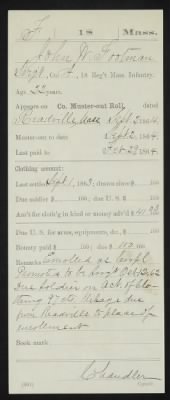 F 18 Mass.
John W. Tootman
Sergt., Co. F, 18 Reg't Mass. Infantry.
Age 22 years.
Appears on Co. Muster-out Roll, dated
Readville Mass Sept 2, 1864
Muster-out to date Sept 2, 1864
Last paid to Feb 29, 1864
Clothing account:
Last settled Sept 1, 1863; drawn since $ 100
Due soldier $ 100; due U. S. $ 100
Am't for cloth'g in kind or money adv'd $ 41
Due U. S. for arms, equipments, &c., $ 100
Bounty paid $ 100; due $ 100
Remarks: Enrolled as Corpl
Promoted to be Sergt Oct 13, 62
Due soldier on act. of clo
thing 97 cts. Mileage due
from Readville to place of
enrolment
Book mark:
Chandler
(361) Copyist.